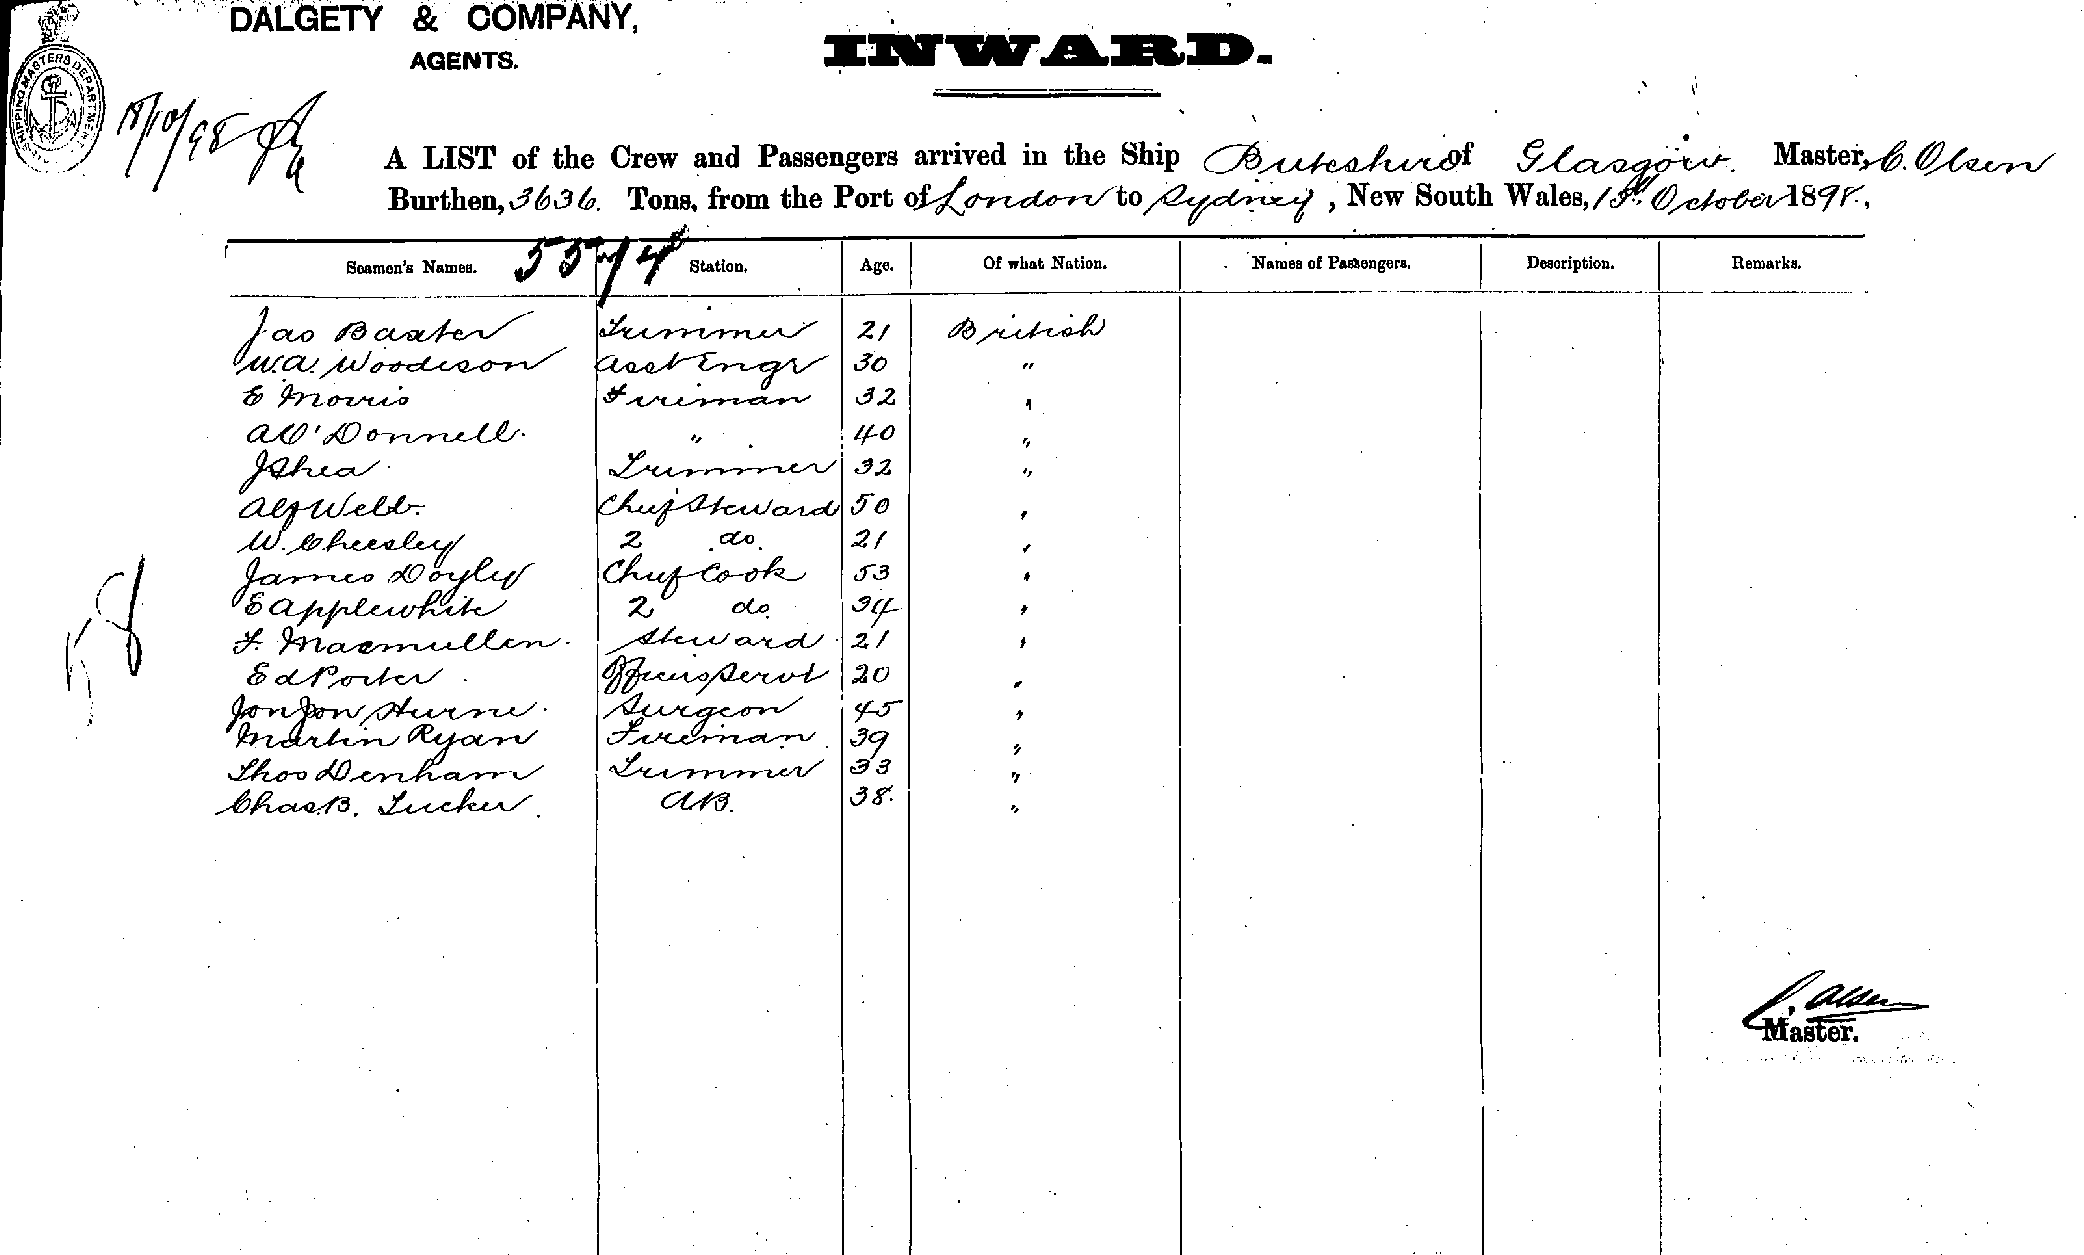 DALGETY & COMPANY,
AGENTS.
INWARD.
SHIPPING MASTERS DEPARTMENT
18/10/98
A LIST of the Crew and Passengers arrived in the Ship Buteshire of Glasgow. Master, C. Olsen
Burthen, 3636. Tons, from the Port of London to Sydney, New South Wales, October 1898.,
Seamen's Names. Station. Age. Of what Nation. Names of Passengers. Description. Remarks.
Jas Baxter Trimmer 21 British
W.A. Woodison Asst Engr 30 "
E Morris Fireman 32 "
A O'Donnell. " 40 "
J Shea Trimmer 32 "
Alf Webb. Chief Steward 50 "
W. Cheesley 2 do. 21 "
James Doyley Chief Cook 53 "
E Applewhite 2 do. 34 "
F. Macmullen. Steward 21 "
Ed Porter Officers Servt 20 "
Surgeon 45 "
Martin Ryan Fireman 39 "
Thos Denham Trimmer 33 "
Chas B. Tucker A B. 38. "
58
C. Olsen
Master.